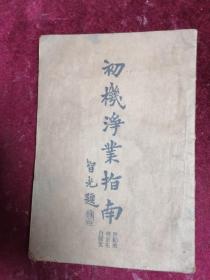 初機淨業指南
智光題